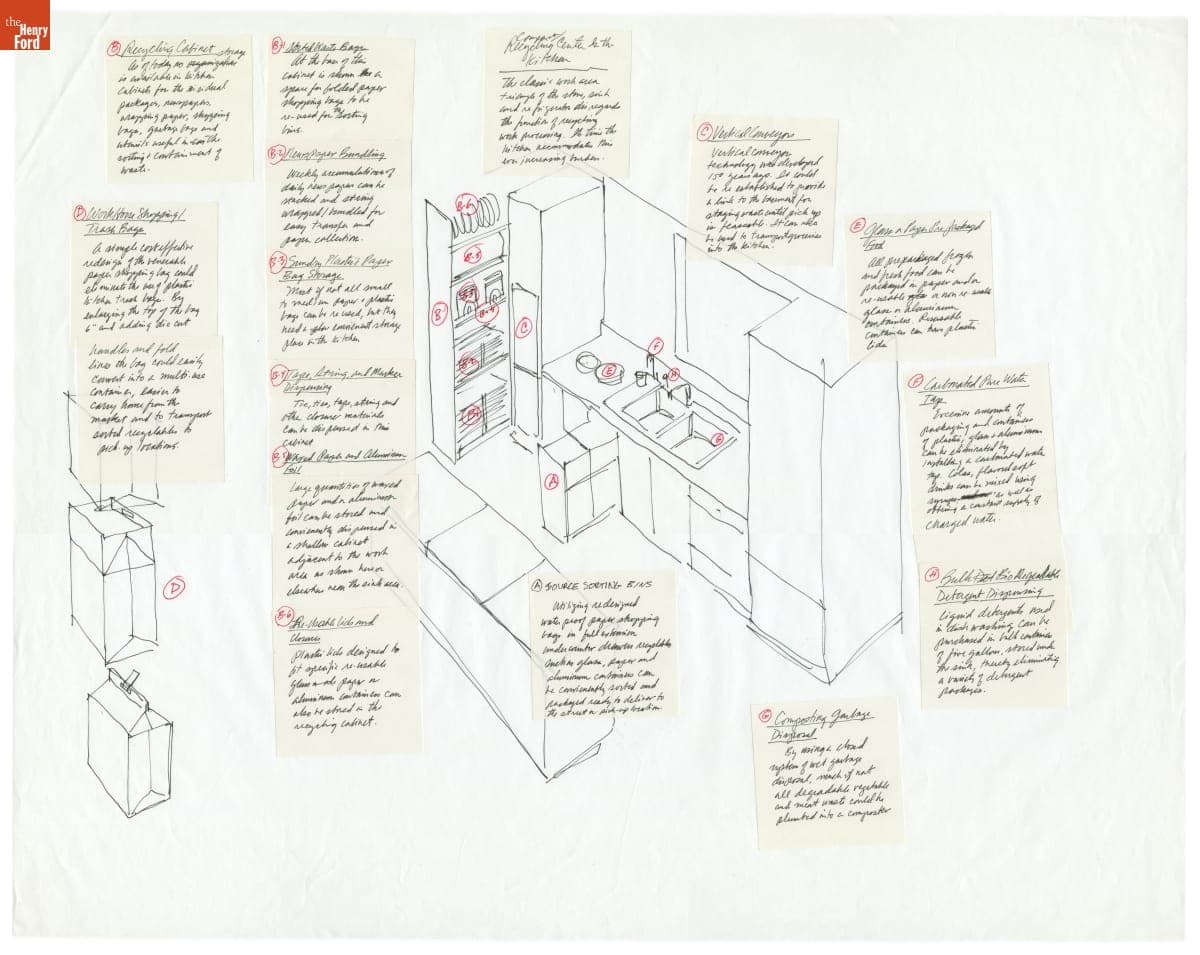 the
Henry
Ford
B Recycling Cabinet
As of today no organization storage
is available in kitchen
cabinets for the residual
packages, newspapers,
wrapping paper, shopping
bags, garbage bags and
utensils useful in the
sorting & containment of
waste.
B-1 Sorted Waste Bags
At the base of this
cabinet is shown a
space for folded paper
shopping bags to be
re-used for the sorting
bins.
B-2 Newspaper Bundling
Weekly accumulations of
daily news paper can be
stacked and string
wrapped/bundled for
easy transfer and
paper collection.
B-3 Sundry Plastic & Paper
Bag Storage
Most if not all small
to medium paper & plastic
bags can be re used, but they
need a convenient storage
place in the kitchen
B-4 Tape, String, and Marker
Dispensing
Tie, ties, tape, string and
other closure materials
can be dispensed in this
cabinet
B-5 Waxed Paper and Aluminum
Foil
Large quantities of waxed
paper and or aluminum
foil can be stored and
conveniently dispensed in
a shallow cabinet
adjacent to the work
area as shown here or
elsewhere near the sink area.
B-6 Re-Usable Lids and
Closures
Plastic lids designed to
fit specific re-usable
glass and paper or
aluminum containers can
also be stored in the
recycling cabinet.
Compact
Recycling Center In the
Kitchen
The classic work area
triangle of the stove, sink
and refrigerator disregards
the function of recycling
work processing. Its time the
kitchen accommodates this
ever increasing burden.
C Vertical Conveyors
Vertical conveyor
technology was developed
150 years ago. It could
be re established to provide
a link to the basement for
staging waste until pick up
is feasible. It can also
be used to transport groceries
into the kitchen.
D Work Horse Shopping/
Trash Bags
A simple cost effective
redesign of the venerable
paper shopping bag could
eliminate the use of plastic
kitchen trash bags. By
enlarging the top of the bag
6" and adding die cut
handles and fold
lines the bag could easily
convert into a multi-use
container, easier to
carry home from the
market and to transport
sorted recyclables to
pick-up locations.
E Glass or Paper Pre-packaged
Food
All prepackaged frozen
and fresh food can be
packaged in paper and/or
re-usable or non re-usable
glass or aluminum
containers. Reusable
containers can have plastic
lids
F Carbonated Pure Water
Taps
Excessive amounts of
packaging and containers
of plastic, glass & aluminum
can be eliminated by
installing a carbonated water
tap. Colas, flavored soft
drinks can be mixed using
syrups as well as
offering a constant supply of
charged water.
H Bulk Bio Degradable
Detergent Dispensing
Liquid detergents used
in dish washing can be
purchased in bulk containers
of five gallons, stored under
the sink, thereby eliminating
a variety of detergent
packages.
A SOURCE SORTING BINS
Utilizing redesigned
water proof paper shopping
bags in full extension
undercounter drawers recyclables
such as glass, paper and
aluminum containers can
be conveniently sorted and
packaged ready to deliver to
the street or pick-up location.
G Composting Garbage
Disposal
By using a closed
system of wet garbage
disposal, much if not
all degradable vegetable
and meat waste could be
plumbed into a composter
B-6
B-5
B-3
B-4
B-2
B-1
B
C
E
F
H
G
A
D